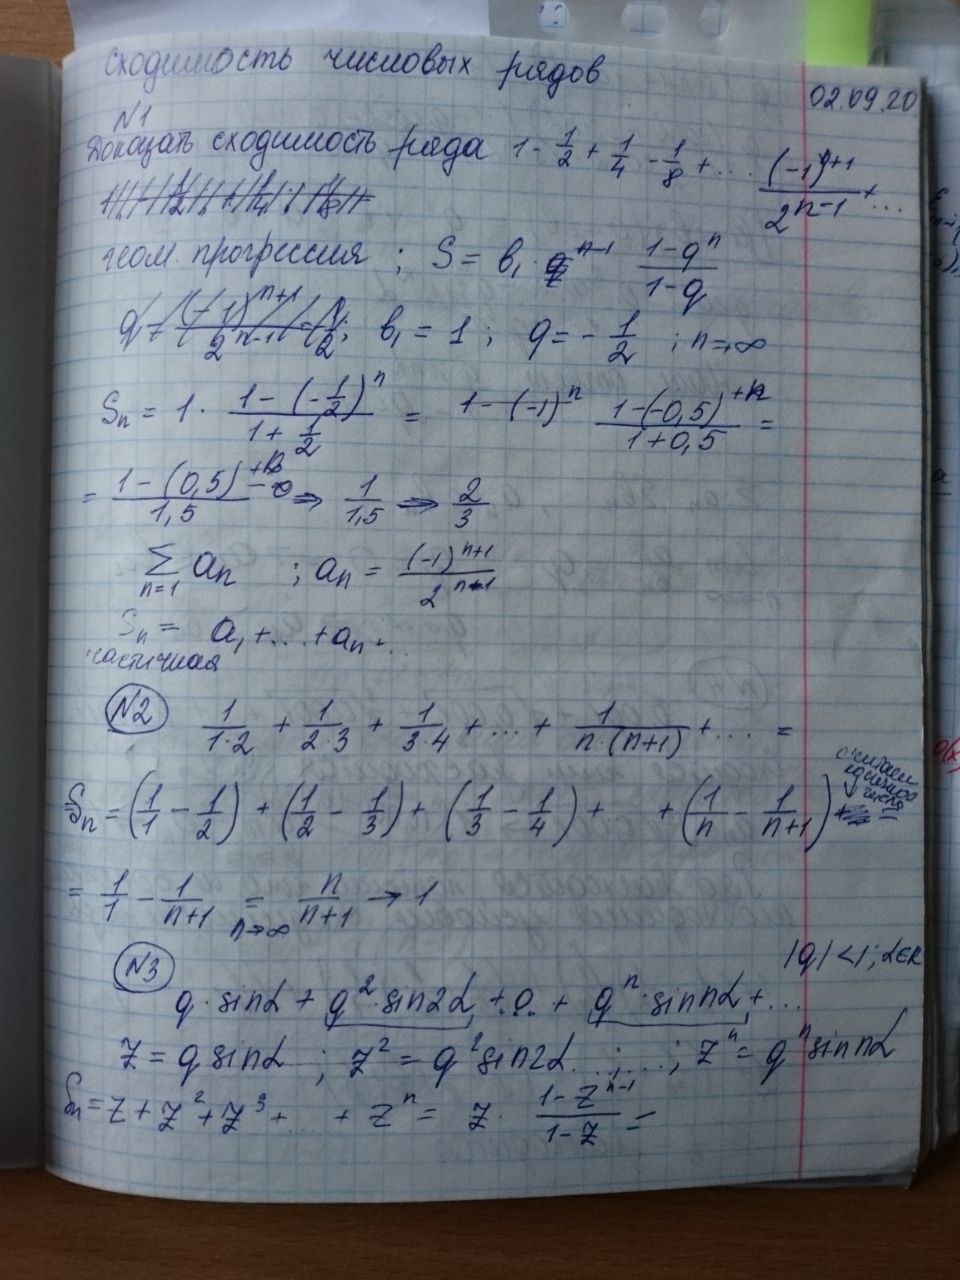 сходимость числовых рядов
02.09.20
N1
Доказать сходимость ряда 1 - 1/2 + 1/4 - 1/8 + ... (-1)^(n+1)/2^(n-1) + ...
геом. прогрессия ; S = b₁ · (1-q^n)/(1-q)
b₁ = 1 ; q = - 1/2 ; n→∞
Sn = 1 · (1-(-1/2)^n)/(1+1/2) = 1-(-1)^n (1-(-0,5)^n)/(1+0,5) =
= (1-(0,5)^n)/1,5 ⇒ 1/1,5 ⇒ 2/3
Σ n=1 an ; an = (-1)^(n+1)/2^(n-1)
Sn = a₁ + ... + an + ...
частичная
N2 1/(1·2) + 1/(2·3) + 1/(3·4) + ... + 1/(n·(n+1)) + ... =
Sn = (1/1 - 1/2) + (1/2 - 1/3) + (1/3 - 1/4) + + (1/n - 1/(n+1))
= 1/1 - 1/(n+1) = n/(n+1) → 1
n→∞
N3 |q| < 1 ; α∈R
q · sinα + q² · sin2α + ... + q^n · sin nα + ...
z = q sinα ; z² = q² sin2α ... ; ... ; z^n = q^n sin nα
Sn = z + z² + z³ + ... + z^n = z · (1-z^(n-1))/(1-z) =